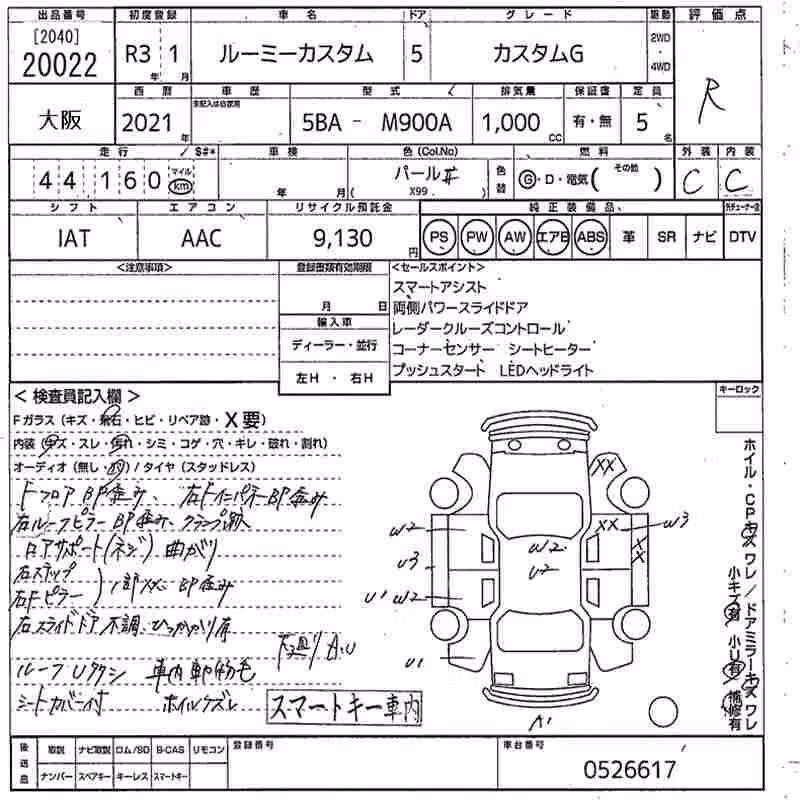 出品番号 初度登録 車名 ドア グレード 駆動 評価点
[2040]
20022 R3 年 1 月 ルーミーカスタム 5 カスタムG 2WD ・ 4WD
R
西暦 車歴 型式 排気量 保証書 定員
大阪 2021 年 未記入は自家用 5BA - M900A 1,000 CC 有・無 5 名
走行 $#* 車検 色(Col.No) 燃料 外装 内装
44160 マイル km 年 月 パール (X99) 色替 G・D・電気( その他 ) C C
シフト エアコン リサイクル預託金 純正装備品
IAT AAC 9,130 円 PS PW AW エアB ABS 革 SR ナビ DTV
<注意事項> 登録書類有効期限 <セールスポイント>
月 日
輸入車
ディーラー・並行
左H・右H
スマートアシスト
両側パワースライドドア
レーダークルーズコントロール
コーナーセンサー シートヒーター
プッシュスタート LEDヘッドライト
キーロック
<検査員記入欄>
Fガラス(キズ・飛石・ヒビ・リペア跡・X要)
内装(キズ・スレ・汚れ・シミ・コゲ・穴・キレ・破れ・割れ)
オーディオ(無し・ )/タイヤ(スタッドレス)
右ルーフピラーBP歪み、クランプ跡
コアサポート(ネジ)曲がり
右ステップ
右Fピラー
1部XX、BP歪み
右スライドドア不調、ひっかかり有
下廻りA.U
ルーフUクタシ 車内動物毛
シートカバー付 ホイルケズレ
スマートキー車内
XX
XX
W3
XX
W2
U3
U1 W2
W2
U2
U1
A1
ホイル・CPキズ ワレ/ドアミラーキズ ワレ
小キズ有 小U有 補修有
後送品 取説 ナビ取説 ロム/SD B-CAS リモコン 登録番号 車台番号
ナンバー スペアキー キーレス スマートキー 0526617